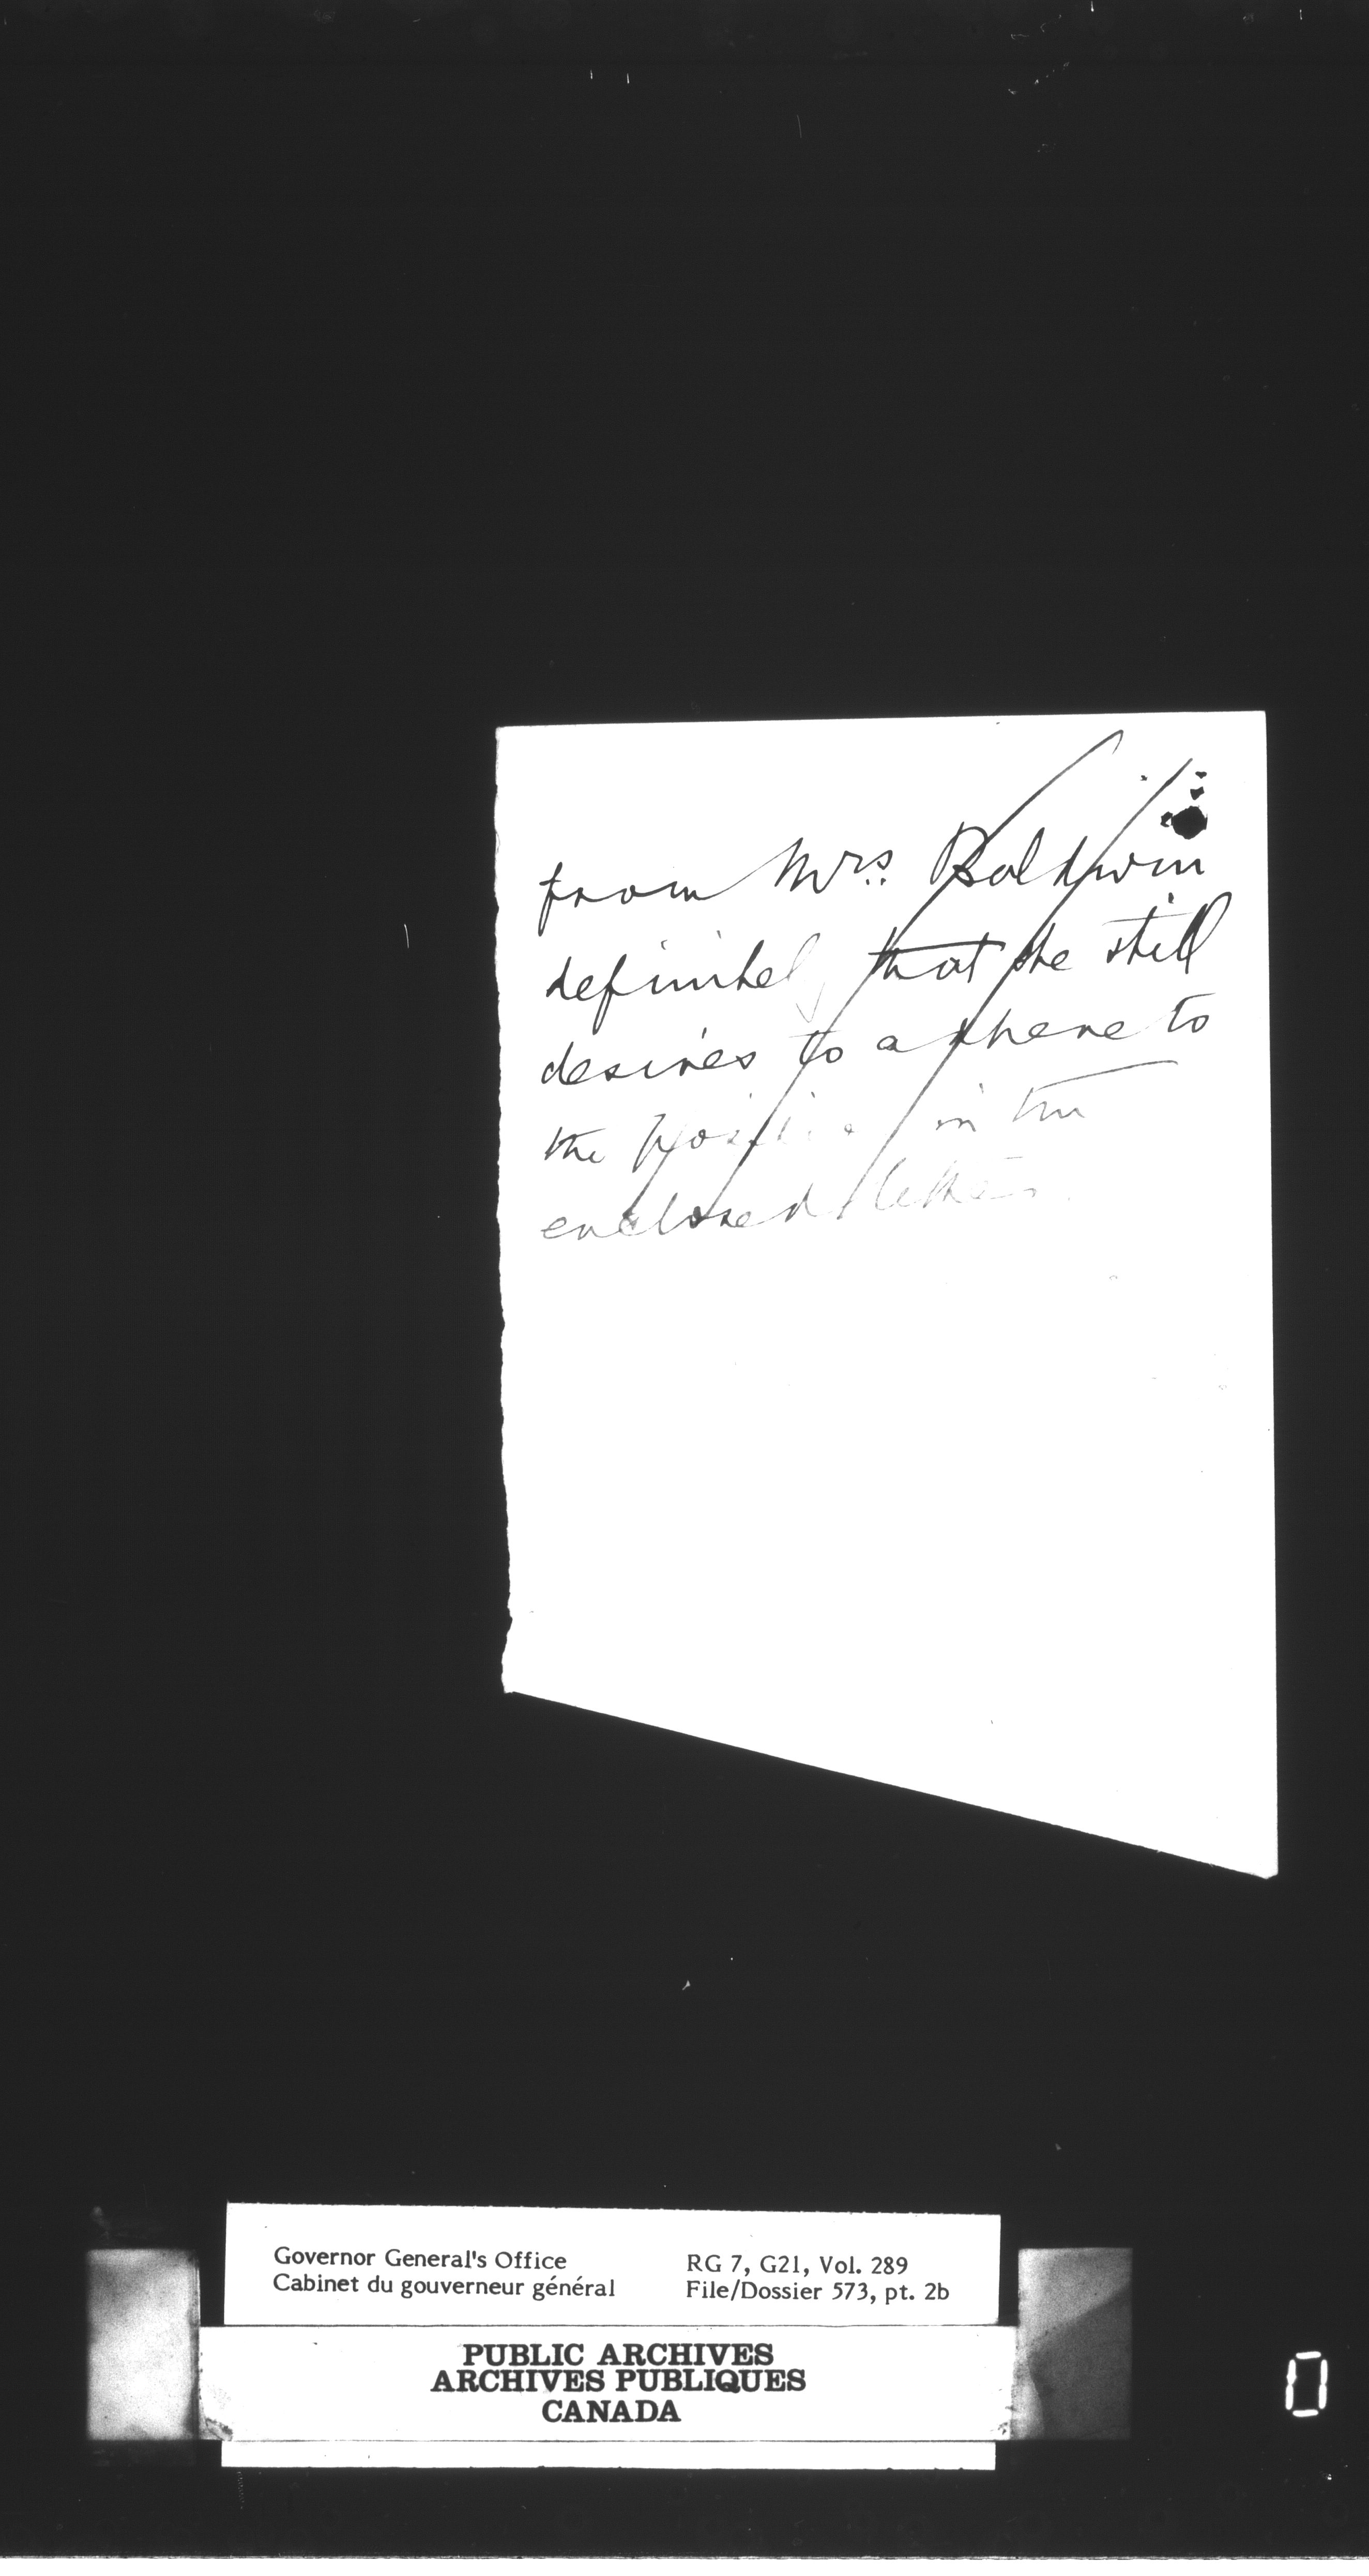 from Mrs. Baldwin
definitely that she still
desires to adhere to
the position in the
enclosed letter.
Governor General's Office
Cabinet du gouverneur général
RG 7, G21, Vol. 289
File/Dossier 573, pt. 2b
PUBLIC ARCHIVES
ARCHIVES PUBLIQUES
CANADA
0